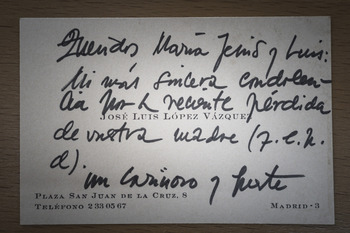 Queridos María Jesús y Luis:
Mi más sincera condolen-
cia por la reciente pérdida
JOSÉ LUIS LÓPEZ VÁZQUEZ
de vuestra madre (q.e.p.
d).
un cariñoso y fuerte
PLAZA SAN JUAN DE LA CRUZ, 8
TELÉFONO 2 33 05 67
MADRID - 3